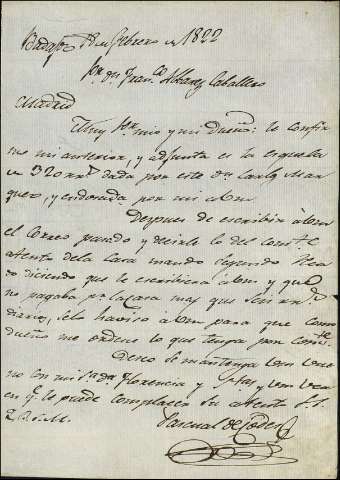 Badajoz 18 en Febrero de 1822
Sr. Dn. Franco. Alvarez Caballero
Madrid
Muy Sr. mio y mi dueño: le confir
mo mi anterior, y adjunta es la esquela
de 320 rrs. dada por este Dn. Carlos Mar
quez, y endosada por mi
Despues de escribir à Vm
el Correo pasado y decirle lo del
Atento de la Casa mando segundo
do diciendo que le escribiera à Vm y que
no pagaba pr. la Casa mas que seis rrs.
diarios, selo haviso à Vm para que como
dueño me ordene lo que tenga por
Deseo se mantenga Vm bue
no con mi Sa. da. Florencia y y Vm vea
en qe. le puede complacer su atento S. S.
Q. B. S. M.
Pascual de